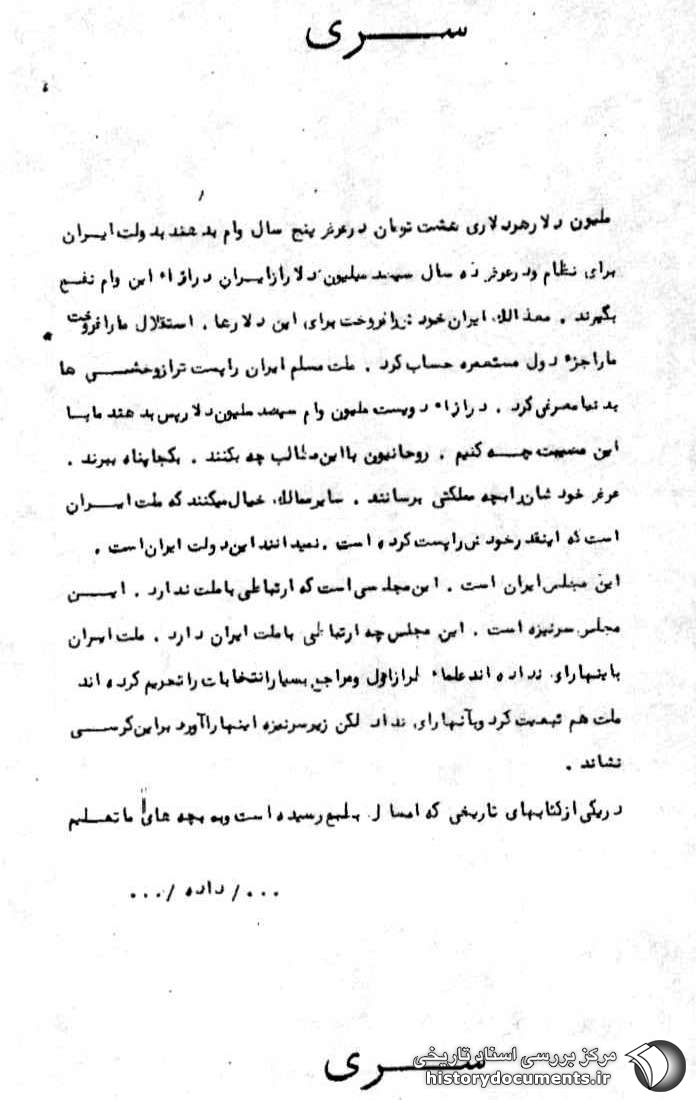 ســـری
ملیون دلار هر دلاری هشت تومان در عرض پنج سال وام بدهند بدولت ایـران
برای نظام و در عرض ده سال سیصد میلیون دلار از ایـران در ازاء این وام نفـع
بگیرند . معذالك ایران خود را فروخت برای این دلارها . استقلال ما را فروخت
ما را جزء دول مستعمره حساب کرد . ملت مسلم ایران را پست تر از وحشـی ها
بدنیا معرفی کرد . در ازاء دویست ملیون وام سیصد ملیون دلار پس بدهند ما بـا
این مصیبت چـه کنیم . روحانیون با این مطالب چه بکنند . بکجا پناه ببرند .
عرض خودشان را بچه مملکتی برسانند . سایر ممالك خیال میکنند که ملت ایـران
است که اینقدر خودش را پست کرده است . نمیدانند این دولت ایران است .
این مجلس ایران است . این مجلسی است که ارتباطی با ملت ندارد . ایـن
مجلس سرنیزه است . این مجلس چه ارتباطی با ملت ایران دارد . ملت ایـران
باینها رای نداده اند علماء طراز اول و مراجع بسیار انتخابات را تحریم کرده اند
ملت هم تبعیت کرد و بآنها رای نداد لکن زیر سرنیزه اینها را آورد بر این کرسـی
نشاند .
در یکی از کتابهای تاریخی که امسال بطبع رسیده است و به بچه های ما تعـلیم
... / داده / ...
ســـری
مرکز بررسی اسناد تاریخی
historydocuments.ir